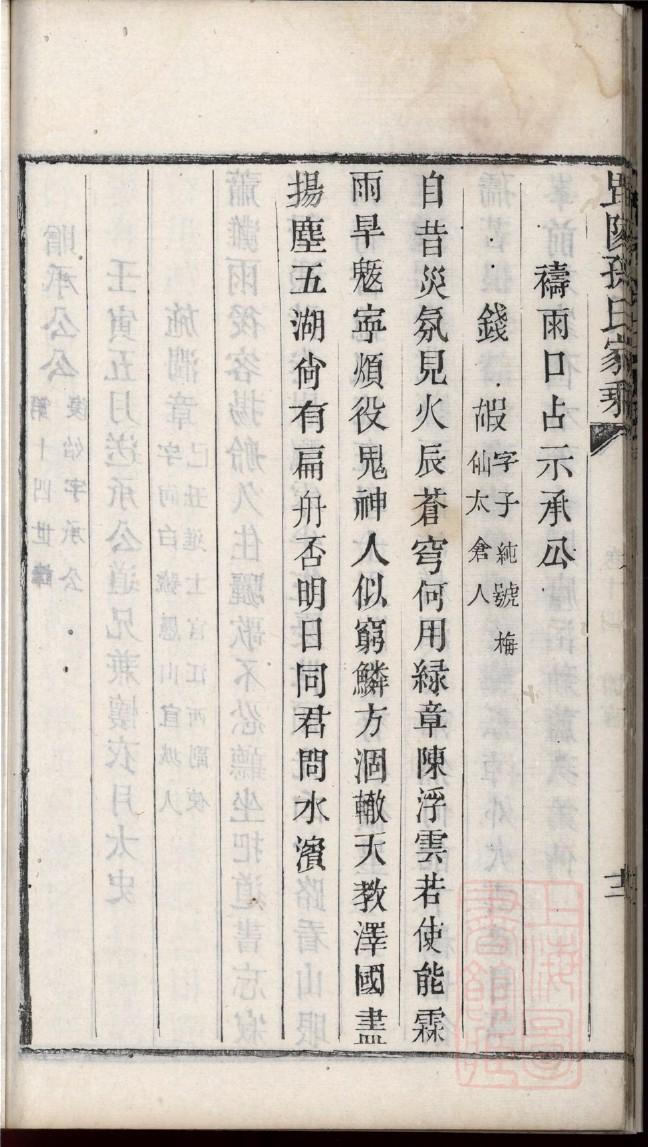 禱雨口占示承公
錢嘏字子純號梅仙太倉人
自昔災氛見火辰蒼穹何用綠章陳浮雲若使能霖
雨旱魃寧煩役鬼神人似窮鱗方涸轍天教澤國盡
揚塵五湖尙有扁舟否明日同君問水濱
孫氏家乘
十二
上海圖書館藏